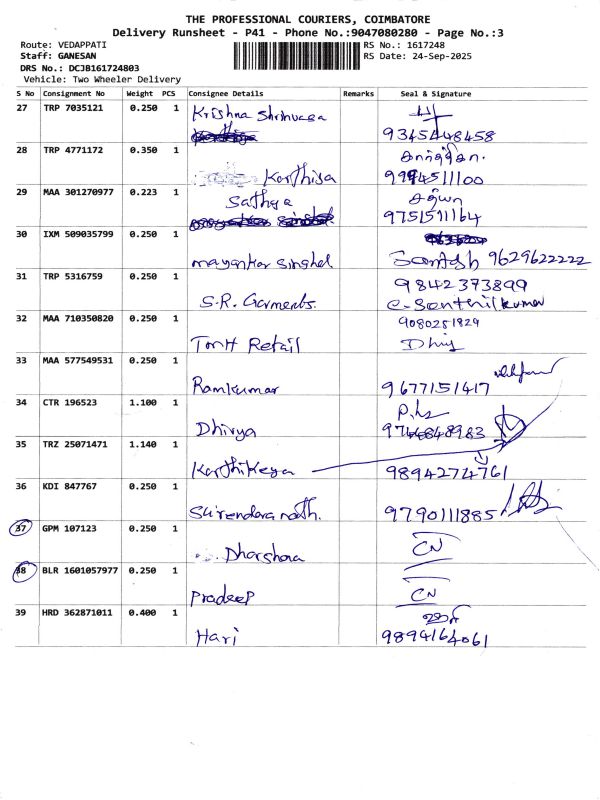 THE PROFESSIONAL COURIERS, COIMBATORE
Delivery Runsheet - P41 - Phone No.:9047080280 - Page No.:3
Route: VEDAPPATI
RS No.: 1617248
Staff: GANESAN
RS Date: 24-Sep-2025
DRS No.: DCJB161724803
Vehicle: Two Wheeler Delivery
S No Consignment No Weight PCS Consignee Details Remarks Seal & Signature
27 TRP 7035121 0.250 1 Krishna Shrinivasa
9345448458
28 TRP 4771172 0.350 1
Karthisa 9994511100
29 MAA 301270977 0.223 1 Sathya சத்யா
9751511164
30 IXM 509035799 0.250 1
mayankar Singhel Santosh 9629622222
31 TRP 5316759 0.250 1 9842373899
S.R. Garments. C-Senthilkumar
32 MAA 710350820 0.250 1 9080251829
TonH Retail
33 MAA 577549531 0.250 1
Ramkumar 9677151417
34 CTR 196523 1.100 1
Dhivya
35 TRZ 25071471 1.140 1
Karthikeya 9894274761
36 KDI 847767 0.250 1
Surendara nath. 9790111885
37 GPM 107123 0.250 1
Dharshana CN
38 BLR 1601057977 0.250 1
Pradeep CN
39 HRD 362871011 0.400 1 ஹரி
Hari 9894164061